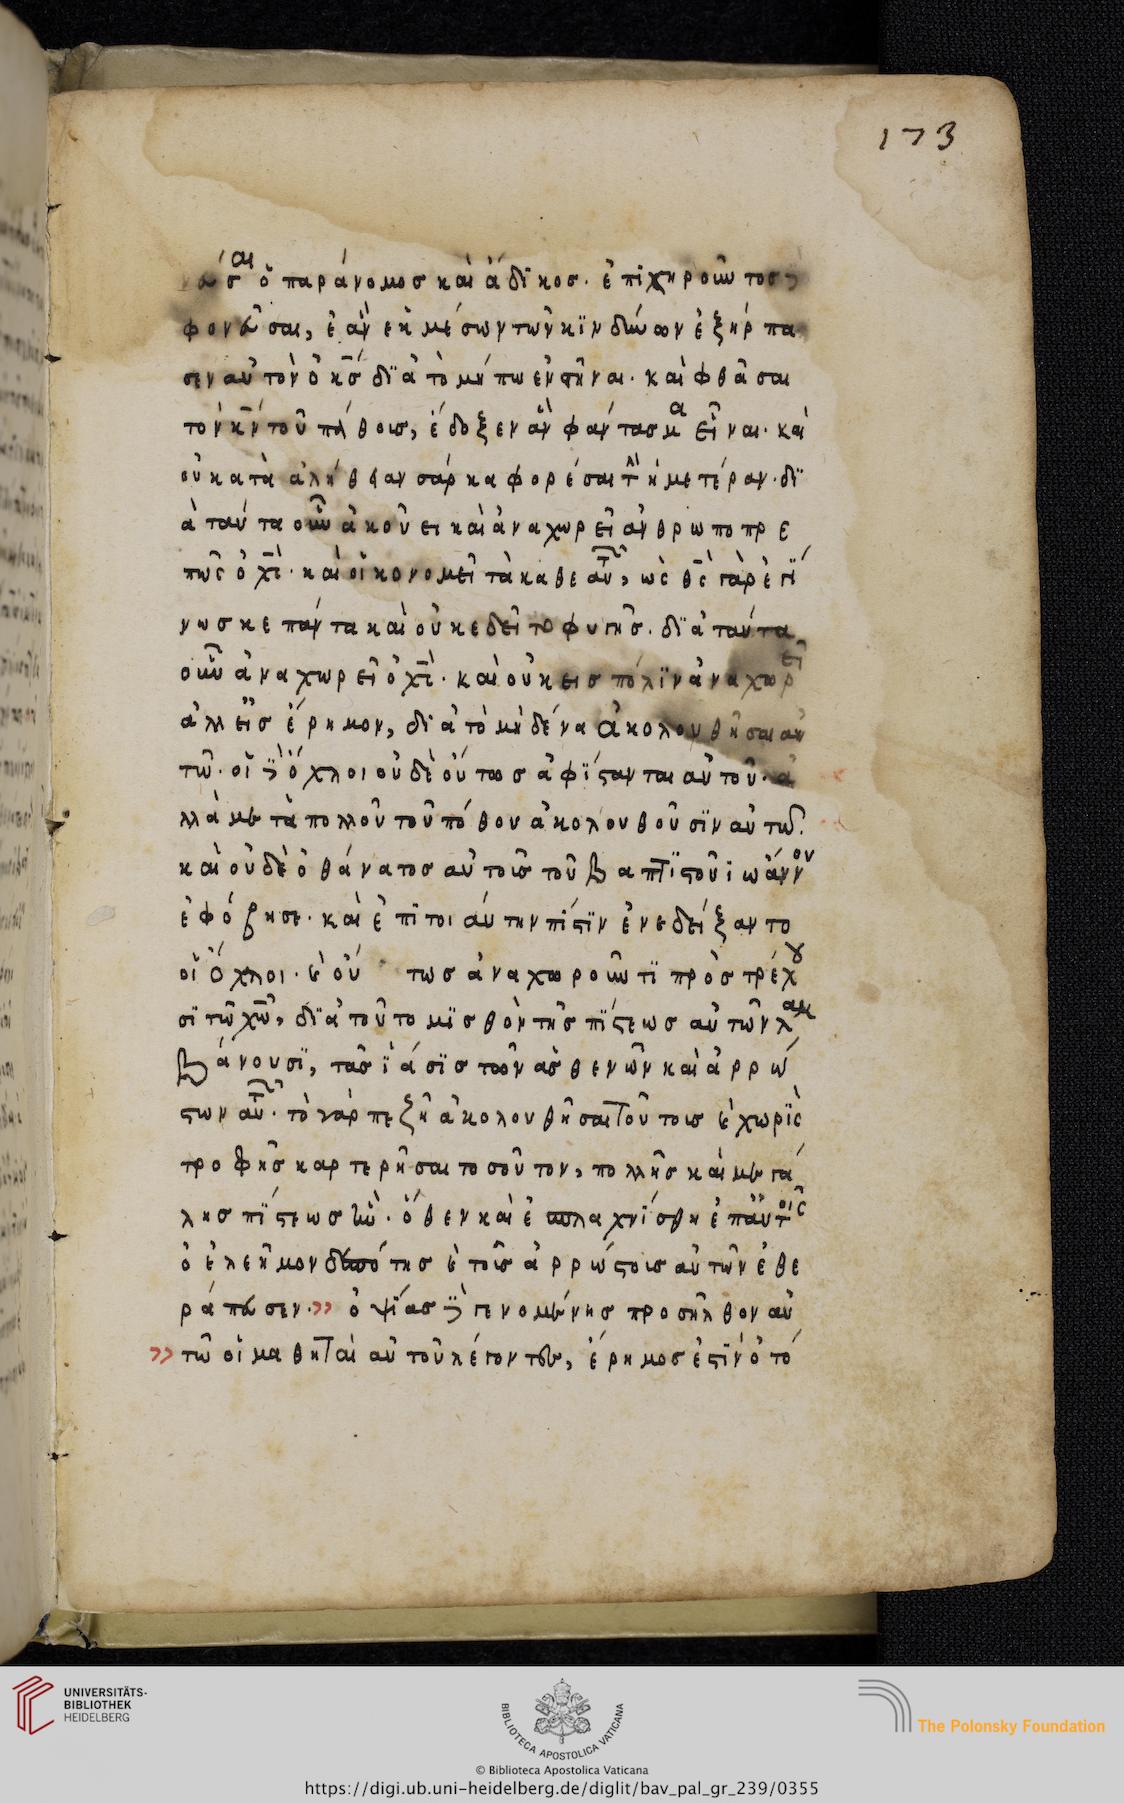 173
ὁ παράνομος καὶ ἄδϊκος. ἐπϊχηροῦντος
φονεῦσαι, ἐὰν ἐκ μέσων τῶν κϊνδύνων ἐξήρπα
σεν αὐτὸν ὁ κ̅ς̅ δϊὰ τὸ μήπω ἐνστῆναι. καὶ φθᾶσαι
τὸν κ̅ν̅ τοῦ πάθους, ἔδοξεν ἂν φάντασμα εἶναι. καὶ
οὐ κατὰ ἀλήθειαν σάρκα φορέσαι τὴν ἡμετέραν. δϊ
ὰ ταύτα οὖν ἀκούει καὶ ἀναχωρεῖ ἀνθρωποπρε
πῶς ὁ χ̅ς̅. καὶ οἰκονομεῖ τὰ καθε αὐτ, ὡς θ̅ς̅ γὰρ ἐγΐ
νωσκε πάντα καὶ οὐκ ἐδεῖτο φυγῆς. δϊὰ ταύτα
οὖν ἀναχωρεῖ ὁ χ̅ς̅. καὶ οὐκ εις πόλϊν ἀναχωρεῖ
ἀλλ εἰς ἔρημον, δϊὰ τὸ μὴδένα ἀκολουθῆσαι αὐ
τῶ. οἱ δὲ ὄχλοι οὐδὲ οὕτως ἀφΐστανται αὐτοῦ. ἀ
λλὰ μετὰ πολλοῦ τοῦ πόθου ἀκολουθοῦσϊν αὐτῶ.
καὶ οὐδὲ ὁ θάνατος αὐτοῖς τοῦ βαπτϊστοῦ ιωάννου
ἐφόβησε. καὶ ἐπϊτοι αύτην πίστϊν ἐνεδείξαντο
οἱ ὄχλοι. καὶ οὕτως ἀναχωροῦντϊ πρὸς τρέχου
σϊ τῶ χ̅ω̅, δϊὰ τοῦτο μϊσθὸν τῆς πΐστεως αὐτῶν λαμ
βάνουσϊ, τὰς ϊάσϊς τῶν ἀσθενῶν καὶ ἀρρώ
στων αὐτ. τὸ γάρ πεζῆ ἀκολουθῆσαι τούτοις καὶ χωρϊς
τροφῆς καρτερῆσαι τοσοῦτον, πολλῆς καὶ μεγά
λης πΐστεως ἦν. ὅθεν καὶ ἐσπλαχνΐσθη ἐπ αὐτοῖς
ὁ ἐλεῆμον δεσπότης καὶ τοῖς ἀρρώστοις αὐτῶν ἐθε
ράπευσεν. ὀψΐας δὲ γενομένης προσῆλθον αὐ
τῶ οἱ μαθηταὶ αὐτοῦ λέγοντες, ἔρημος ἐστϊν ὁ τό
UNIVERSITÄTS-
BIBLIOTHEK
HEIDELBERG
BIBLIOTECA APOSTOLICA VATICANA
The Polonsky Foundation
© Biblioteca Apostolica Vaticana
https://digi.ub.uni-heidelberg.de/diglit/bav_pal_gr_239/0355